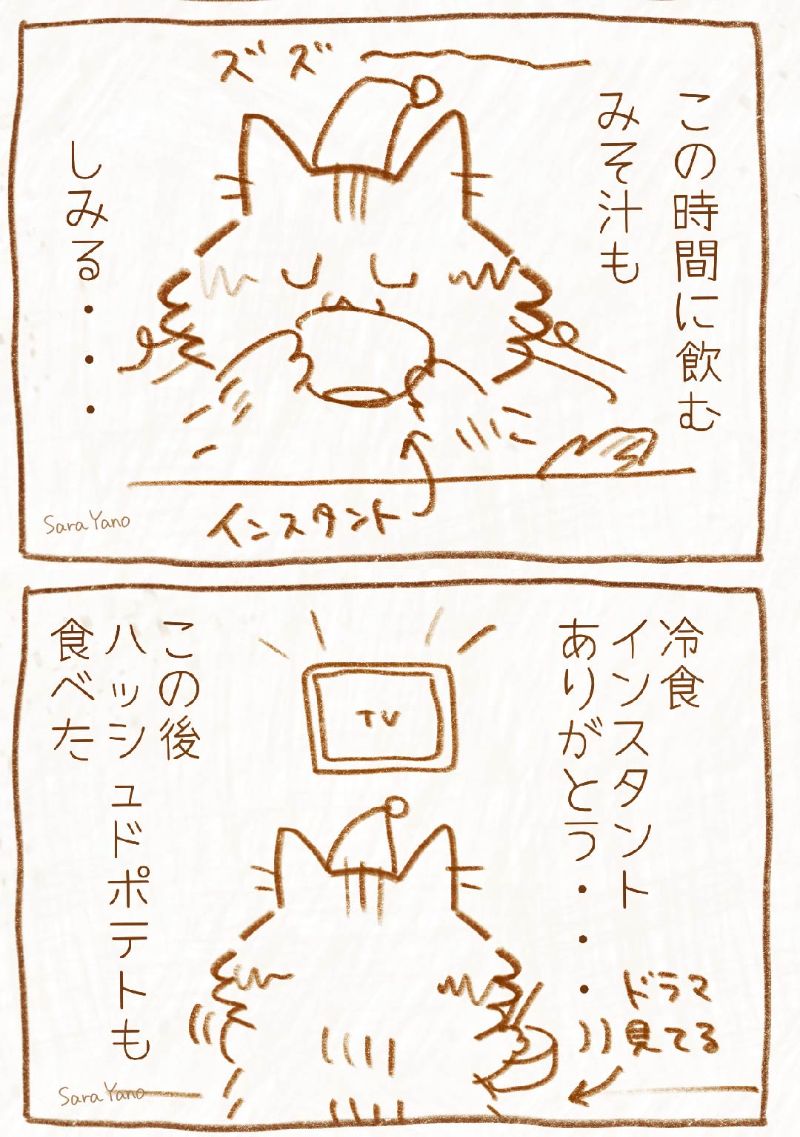 ズズ
この時間に飲む
みそ汁も
しみる・・・
インスタント
Sara Yano
冷食
インスタント
ありがとう・・・
TV
ドラマ
見てる
この後
ハッシュドポテトも
食べた
Sara Yano